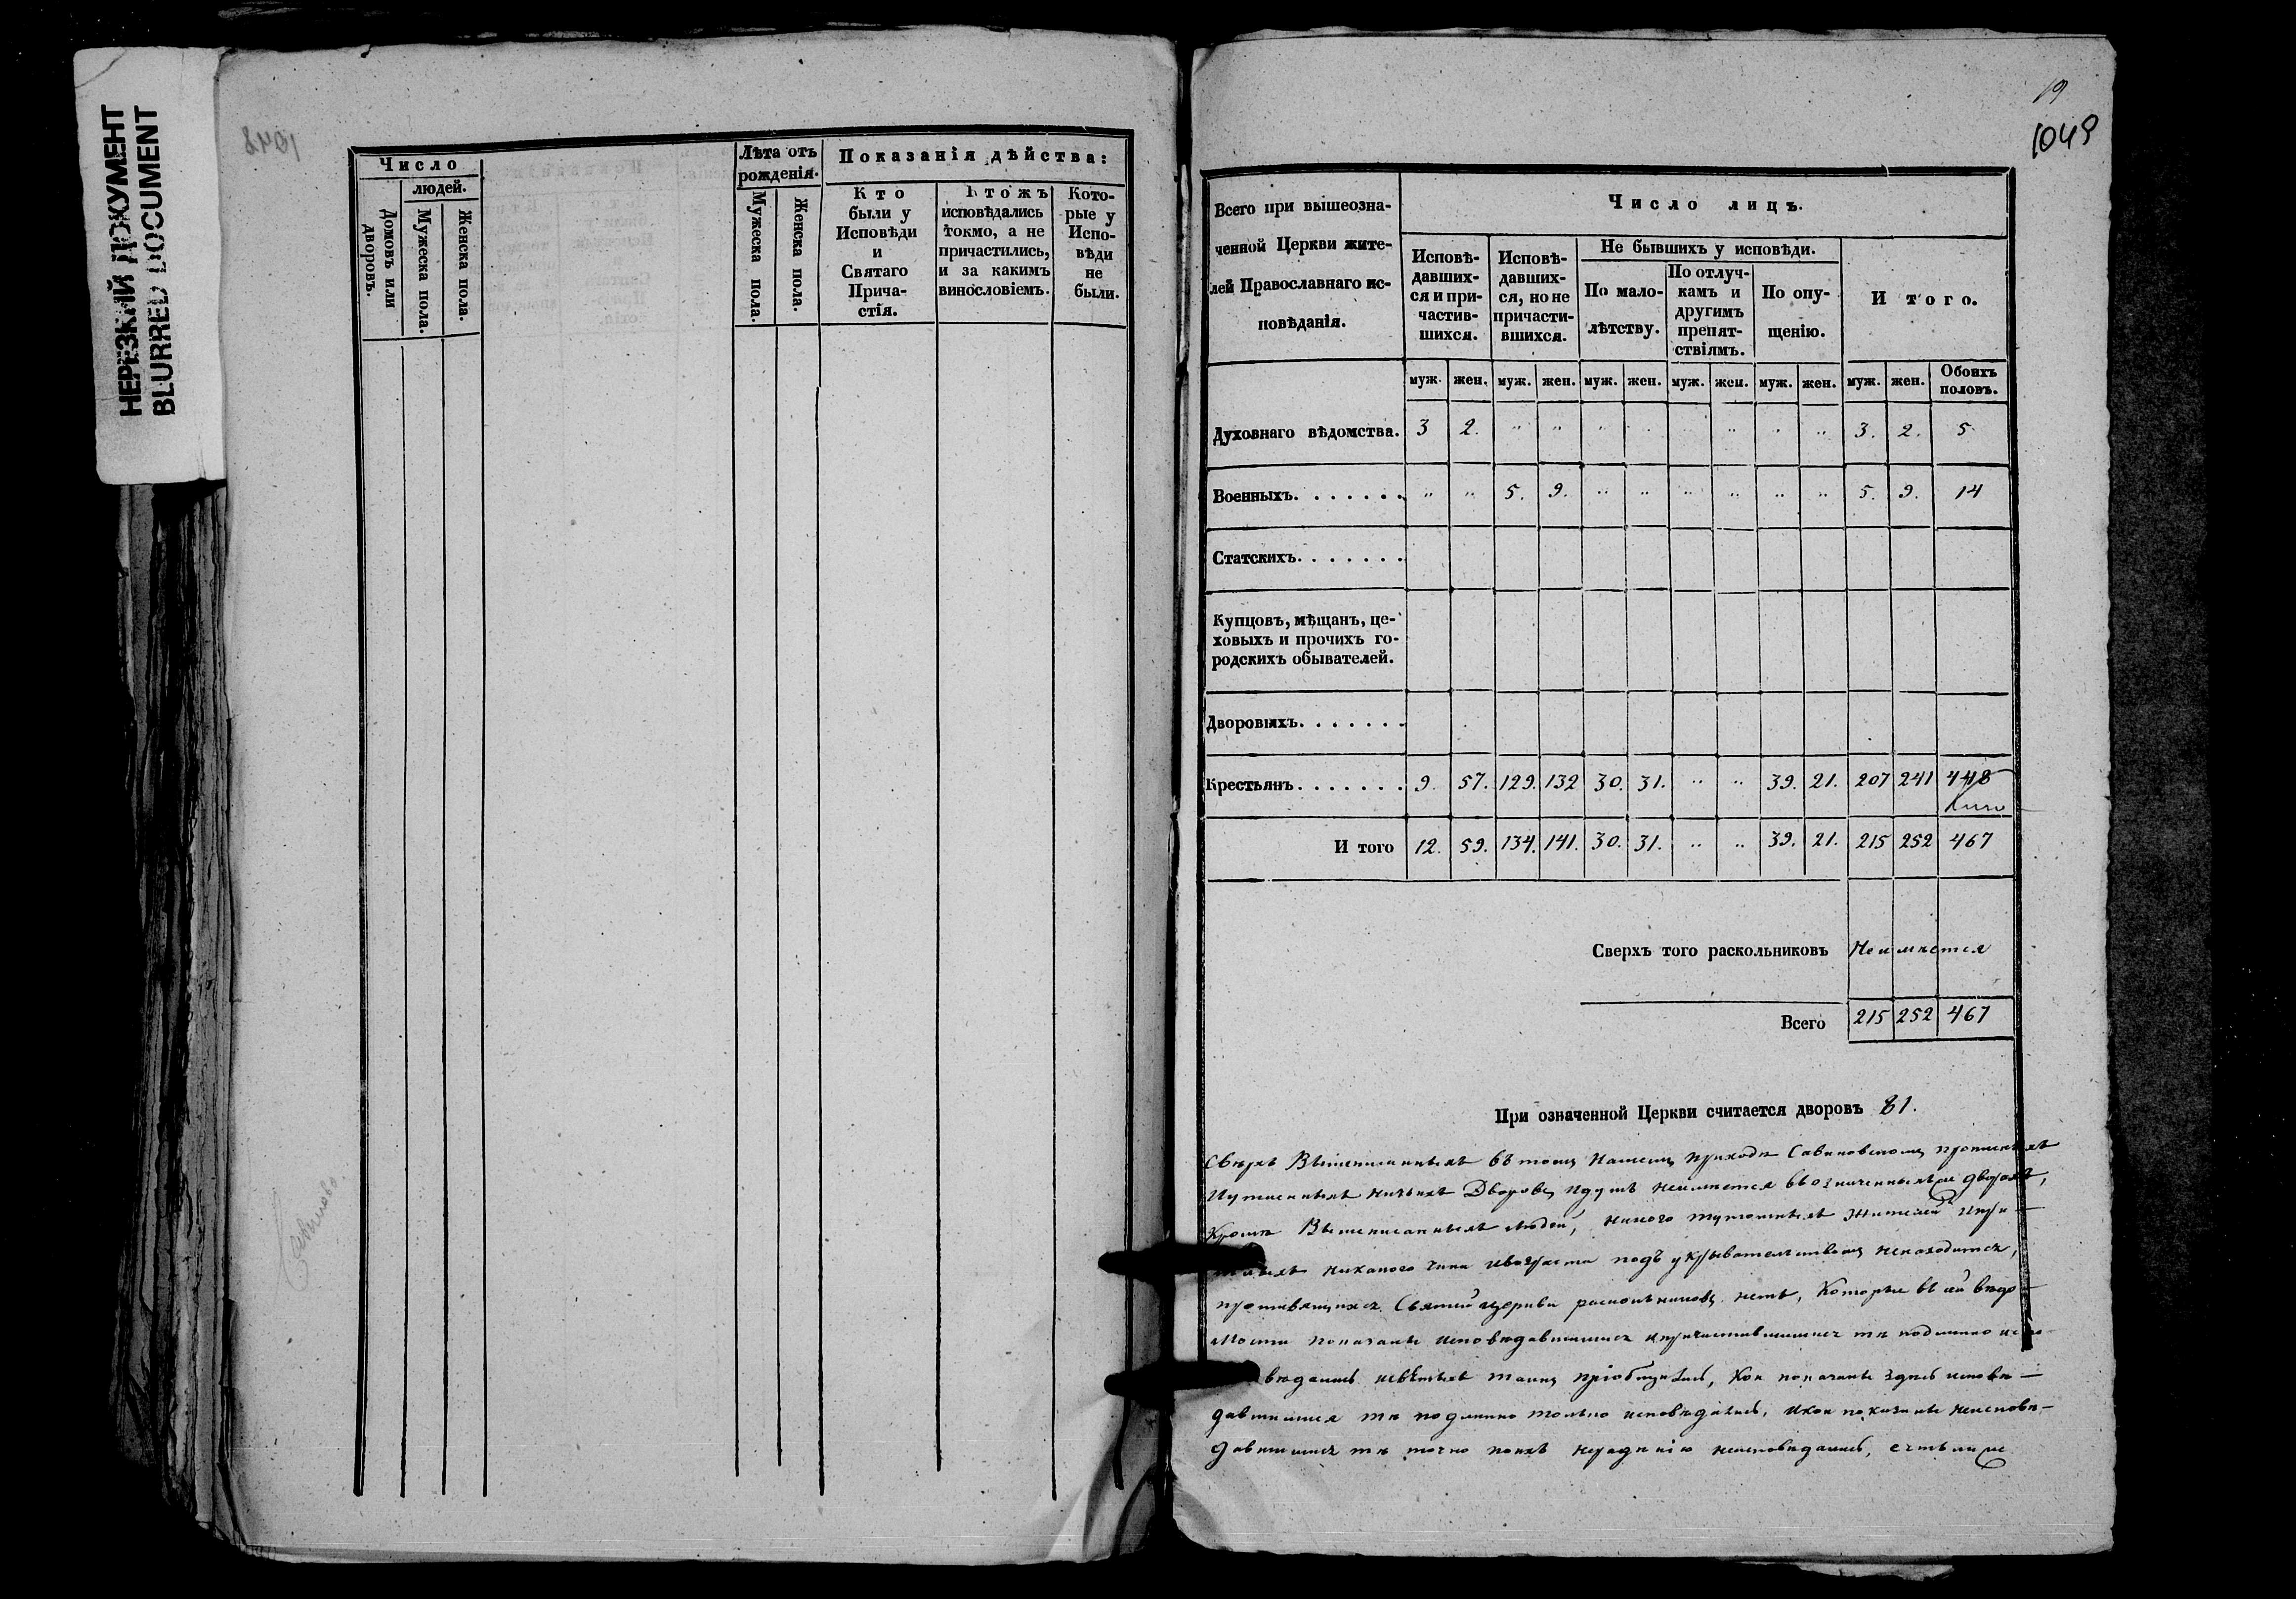 НЕРЕЗКИЙ ДОКУМЕНТ
BLURRED DOCUMENT
Число
людей.
Домовъ или дворовъ.
Мужеска пола.
Женска пола.
Лѣта отъ рожденія.
Мужеска пола.
Женска пола.
Показанія дѣйства:
Кто
были у
Исповѣди
и
Святаго
Прича-
стія.
Ктожъ
исповѣдались
токмо, а не
причастились,
и за какимъ
винословіемъ.
Кото-
рые у
Испо-
вѣди
не
были.
19
1049
Всего при вышеозна-
ченной Церкви жите-
лей Православнаго ис-
повѣданія.
Число лицъ.
Исповѣ-
давших-
ся и при-
частив-
шихся.
Исповѣ-
давших-
ся, но не
причасти-
вшихся.
Не бывшихъ у исповѣди.
По мало-
лѣтству.
По отлуч-
камъ и
другимъ
препят-
ствіямъ.
По опу-
щенію.
И того.
муж. жен. муж. жен. муж. жен. муж. жен. муж. жен. муж. жен. Обоихъ половъ.
Духовнаго вѣдомства. 3 2. " " " " " " " 3. 2. 5
Военныхъ. . . . . . . " " 5. 9. " " " " " " 5. 9. 14
Статскихъ. . . . . . .
Купцовъ, мѣщанъ, це-
ховыхъ и прочихъ го-
родскихъ обывателей.
Дворовыхъ. . . . . . .
Крестьянъ. . . . . . . 9. 57. 129. 132 30. 31. " " 39. 21. 207 241 448
И того 12. 59. 134. 141. 30. 31. " " 39. 21. 215 252 467
Сверхъ того раскольниковъ Неимѣется
Всего 215 252 467
При означенной Церкви считается дворовъ 81.
Сверхъ Вышеписанныхъ въ томъ Нашемъ приходѣ Савиновскомъ
ничьихъ Дворовъ неимѣется
Кромѣ Вышеписанныхъ людей, никого жителей
никакого чина подъ укрывательствомъ ненаходится,
противящихся Святой Церкви раскольниковъ нетъ, Которые въ сей вѣдо-
мости показаны исповѣдавшимися и причастившимися тѣ подлинно испо-
вѣдались и святыхъ таинъ пріобщились, Кои показаны здѣсь исповѣ-
давшимися тѣ подлинно только исповѣдались, и кои показаны неисповѣ-
давшимися тѣ точно по ихъ нерадѣнію неисповѣдались,